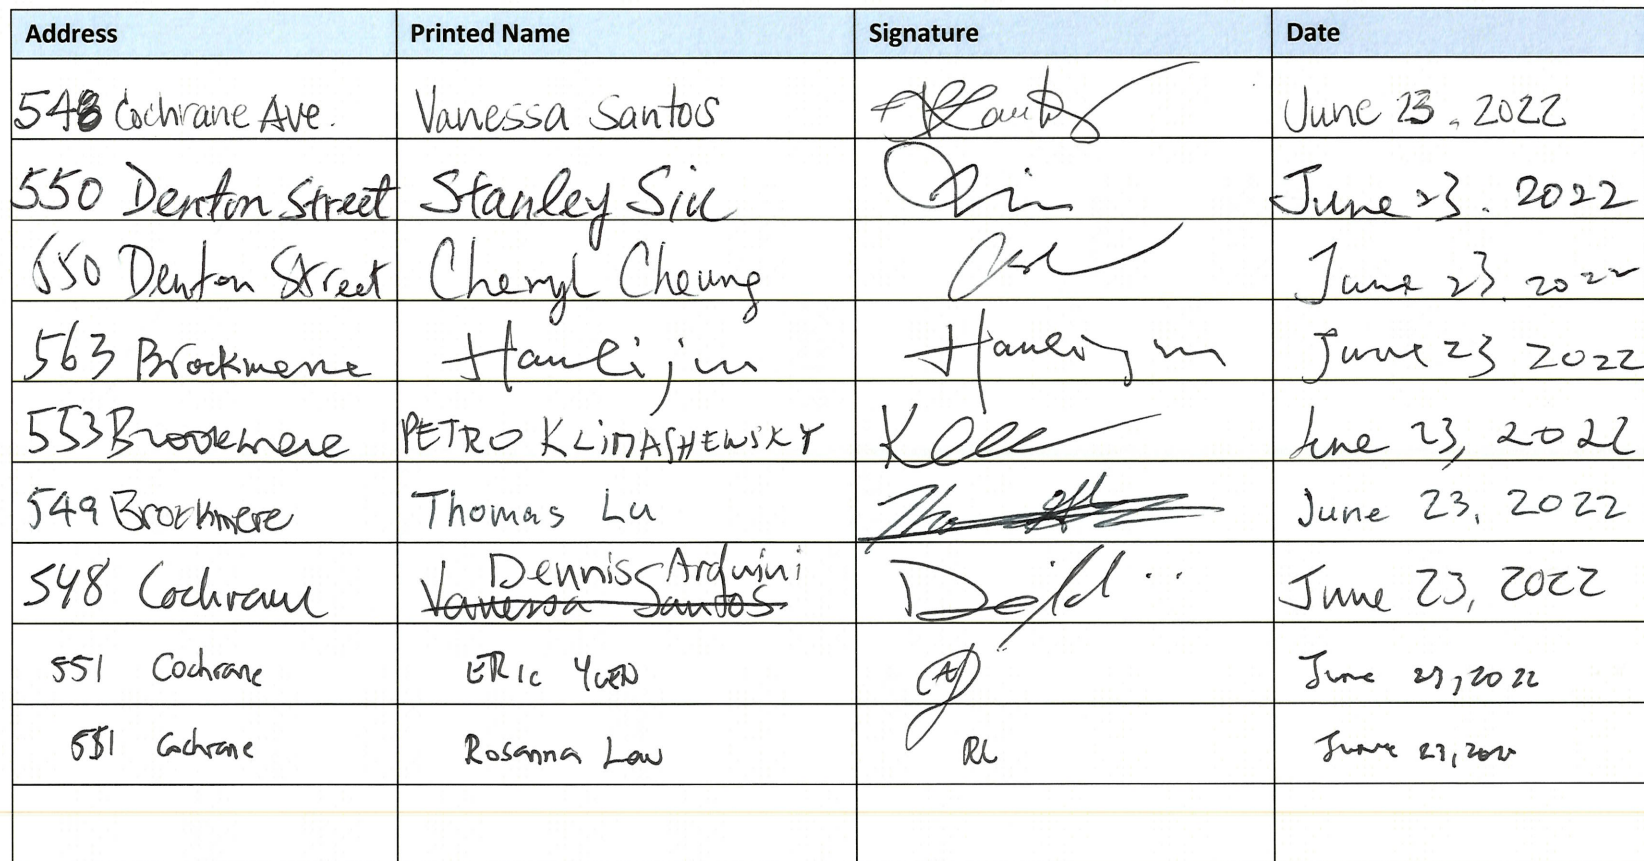 Address Printed Name Signature Date
548 Cochrane Ave. Vanessa Santos June 23. 2022
550 Denton Street Stanley Siu June 23. 2022
550 Denton Street Cheryl Cheung June 23. 2022
563 Brockmere Hanlijun Hanlijun June 23 2022
553 Brookmere PETRO KLIMASHEWSKY June 23, 2022
549 Brockmere Thomas Lu June 23, 2022
Dennis Arduini
548 Cochrane Vanessa Santos June 23, 2022
551 Cochrane ERIC YUEN June 23, 2022
551 Cochrane Rosanna Law RL June 23, 2022